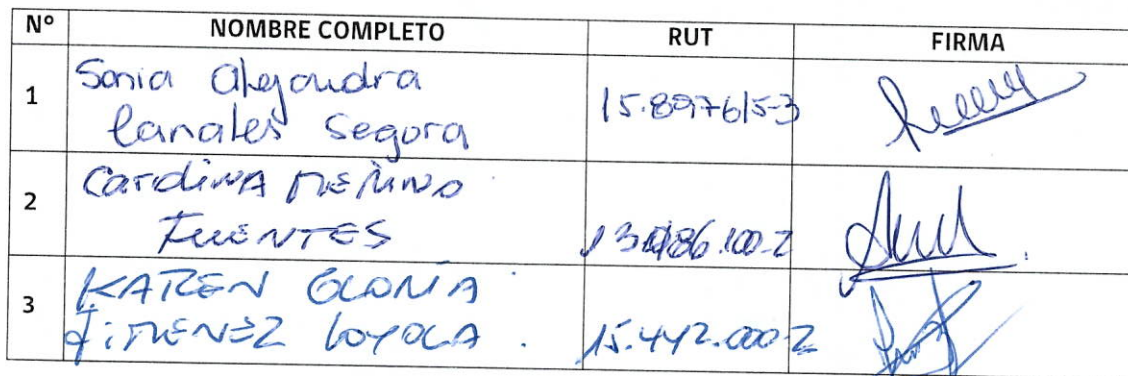 N° NOMBRE COMPLETO RUT FIRMA
1 Sonia Alejandra
Canales Segora 15.897615-3
2 Carolina Merino
Fuentes
3 KAREN GLORIA
JIMENEZ LOYOLA. 15.442.000-2